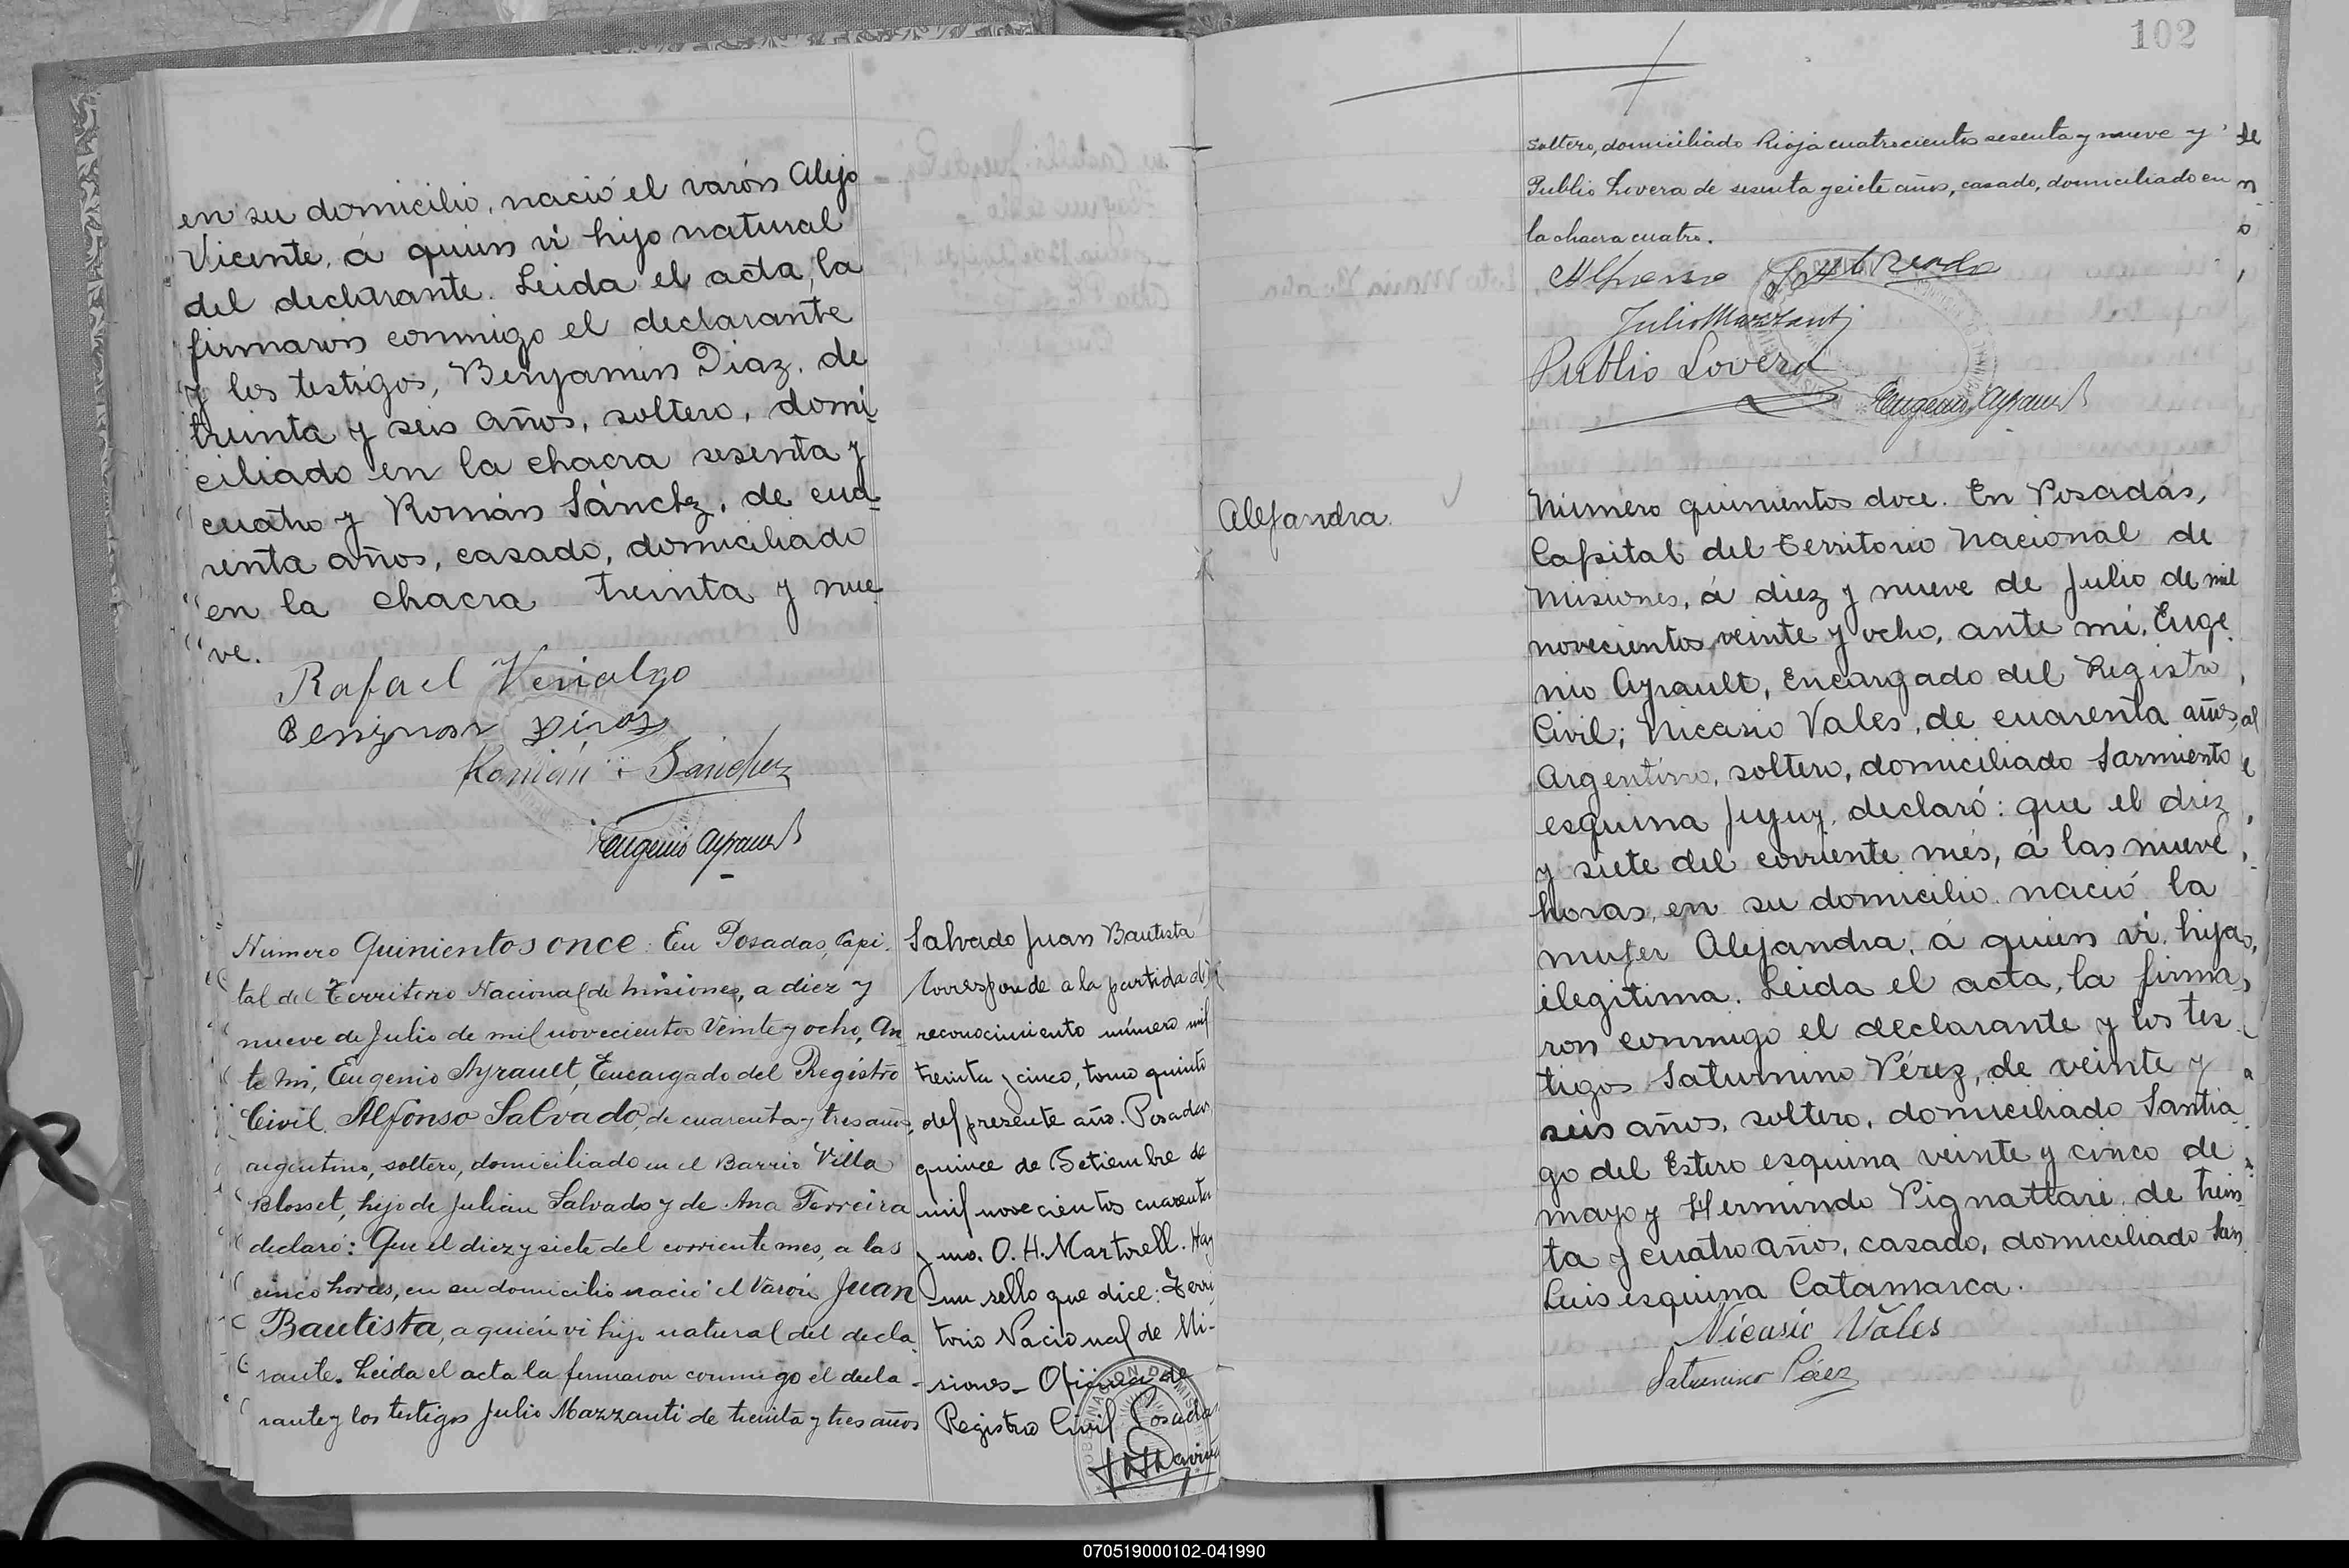 en su domicilio, nació el varón Alejo
Vicente, á quien vi hijo natural
del declarante. Leida el acta, la
firmaron conmigo el declarante
y los testigos, Benjamin Diaz, de
treinta y seis años, soltero, domi
ciliado en la chacra sesenta y
cuatro y Román Sánchz, de cua-
renta años, casado, domiciliado
en la chacra treinta y nue-
ve.
Rafael Verialgo
Román Sanchez
Eugenio Ayrault
Número Quinientos once. En Posadas, Capi-
tal del Territorio Nacional de Misiones, a diez y
nueve de Julio de mil novecientos Veinte y ocho, An
te mi, Eugenio Ayrault, Encargado del Registro
Civil, Alfonso Salvado, de cuarenta y tres años,
argentino, soltero, domiciliado en el Barrio Villa
Blosset, hijo de Julian Salvado y de Ana Ferreira
declaró: Que el diez y siete del corriente mes, a las
cinco horas, en su domicilio nació el Varón Juan
Bautista, a quien vi hijo natural del decla-
rante. Leida el acta la firmaron conmigo el decla-
rante y los testigos Julio Mazzanti de treinta y tres años
Salvado Juan Bautista
Corresponde a la partida de
reconocimiento número mil
treinta y cinco, tomo quinto
del presente año. Posadas,
quince de Setiembre de
mil novecientos cuarenta
y uno. O. H. Martorell. Hay
un sello que dice: Terri
torio Nacional de Mi-
siones - Oficina de
Registro Civil Posadas
102
soltero, domiciliado Rioja cuatrocientos sesenta y nueve y
Publio Lovera de sesenta y siete años, casado, domiciliado en
la chacra cuatro.
Alfonso Salvado
Julio Mazzanti
Publio Lovera
Eugenio Ayrault
Alejandra
Número quinientos doce. En Posadas,
Capital del Territorio Nacional de
Misiones, á diez y nueve de Julio de mil
novecientos veinte y ocho, ante mi, Euge
nio Ayrault, Encargado del Registro
Civil; Nicasio Vales, de cuarenta años,
Argentino, soltero, domiciliado Sarmiento
esquina Jujuy, declaró: que el diez
y siete del corriente més, á las nueve
horas, en su domicilio nació la
mujer Alejandra, á quien vi, hija
ilegitima. Leida el acta, la firma
ron conmigo el declarante y los tes
tigos Saturnino Pérez, de veinte y
seis años, soltero, domiciliado Santia
go del Estero esquina veinte y cinco de
mayo y Hermindo Pignattari de trein
ta y cuatro años, casado, domiciliado San
Luis esquina Catamarca.
Nicasio Vales
Saturnino Pérez
070519000102-041990